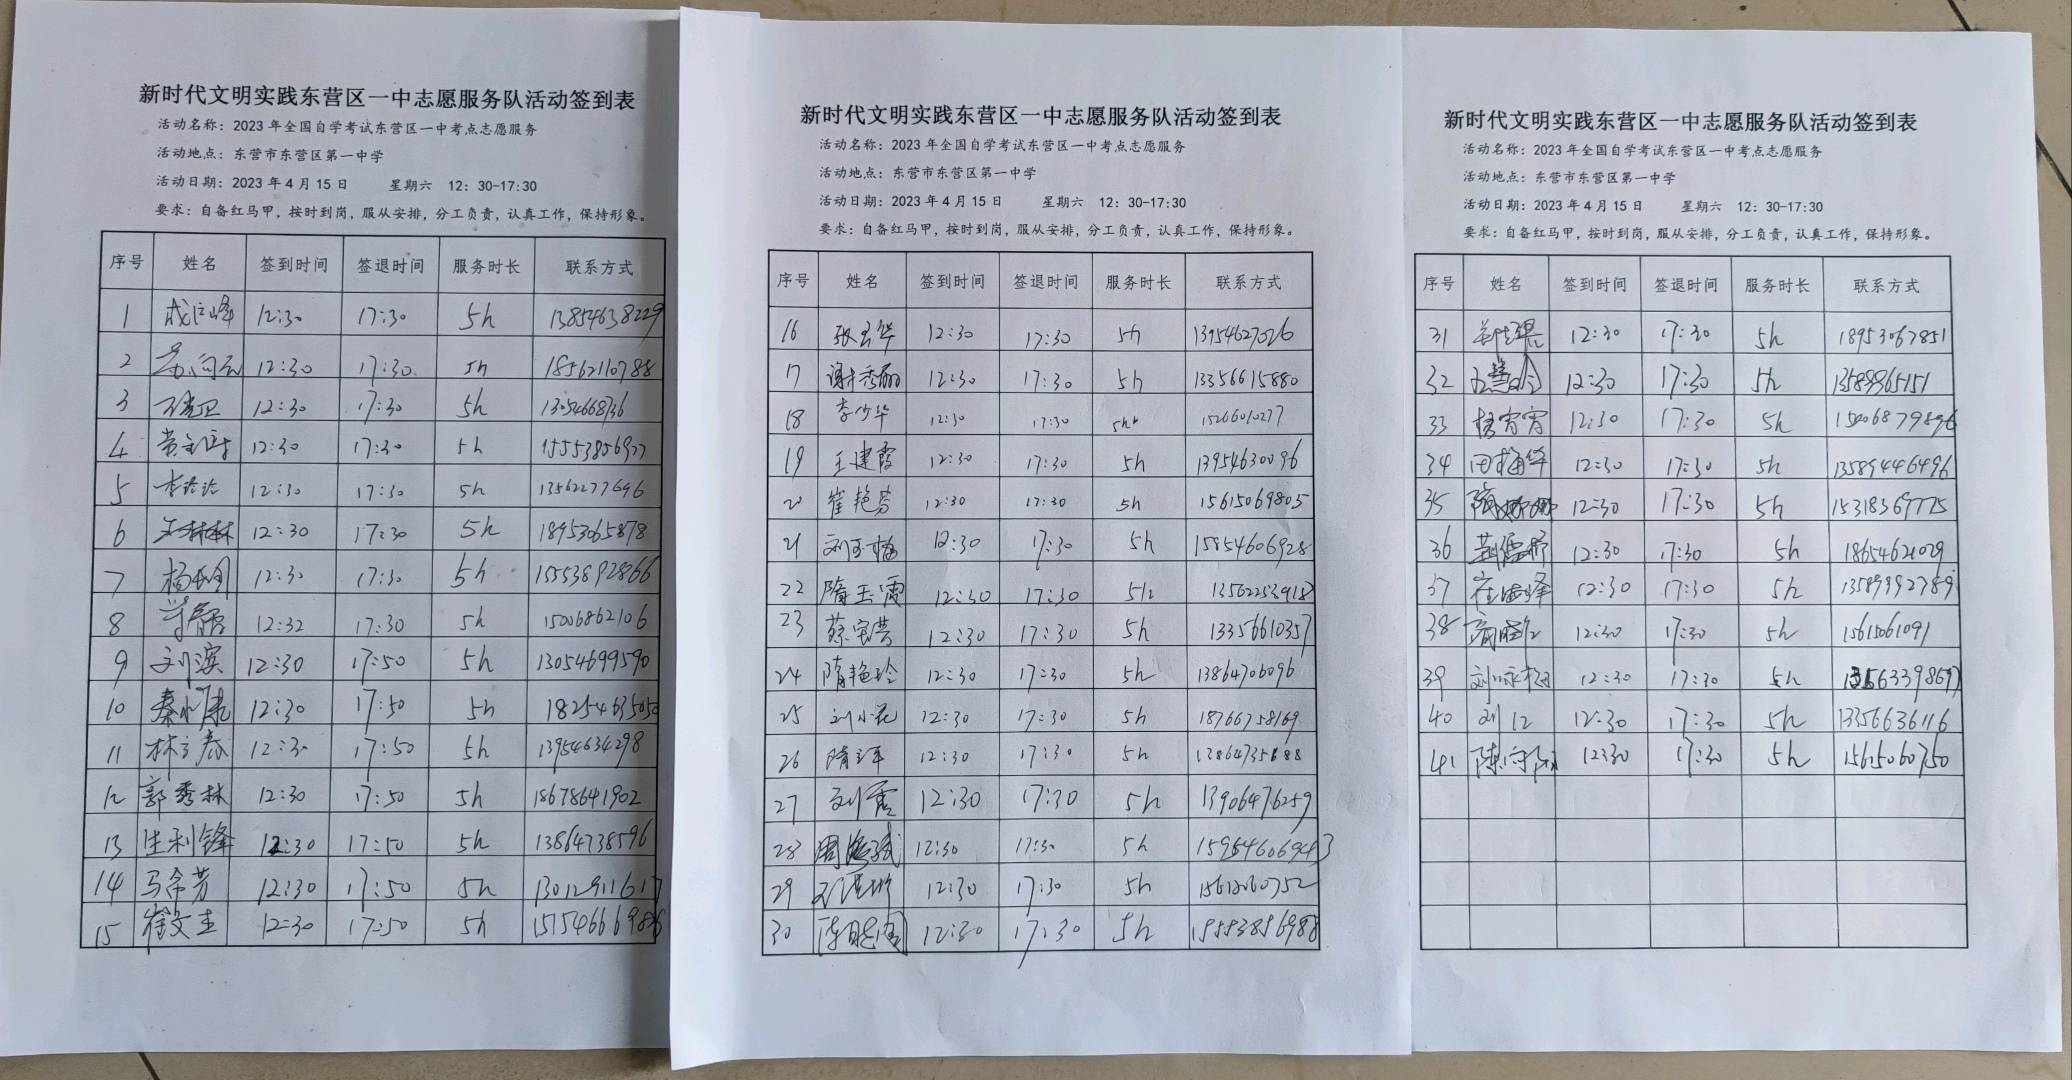 新时代文明实践东营区一中志愿服务队活动签到表
活动名称：2023 年全国自学考试东营区一中考点志愿服务
活动地点：东营市东营区第一中学
活动日期：2023 年 4 月 15 日 星期六 12：30-17:30
要求：自备红马甲，按时到岗，服从安排，分工负责，认真工作，保持形象。
序号 姓名 签到时间 签退时间 服务时长 联系方式
1 12:30 17:30 5h 13854638229
2 12:30 17:30 5h 18562110788
3 12:30 17:30 5h
4 12:30 17:30 5h
5 12:30 17:30 5h 13562277696
6 12:30 17:30 5h 18953065878
7 12:30 17:30 5h 15553892866
8 12:32 17:30 5h 15006862106
9 刘滨 12:30 17:50 5h 13054699590
10 秦永康 12:30 17:50 5h
11 林立春 12:30 17:50 5h 13954634298
12 郭秀林 12:30 17:50 5h 18678641902
13 生利锋 12:30 17:50 5h 13864738596
14 马希芳 12:30 17:50 5h 13012911617
15 崔文生 12:30 17:50 5h
新时代文明实践东营区一中志愿服务队活动签到表
活动名称：2023 年全国自学考试东营区一中考点志愿服务
活动地点：东营市东营区第一中学
活动日期：2023 年 4 月 15 日 星期六 12：30-17:30
要求：自备红马甲，按时到岗，服从安排，分工负责，认真工作，保持形象。
序号 姓名 签到时间 签退时间 服务时长 联系方式
16 12:30 17:30 5h 13954627026
17 谢秀丽 12:30 17:30 5h 13356615880
18 李少华 12:30 17:30 5h 15266010277
19 王建霞 12:30 17:30 5h 13954630096
20 崔艳芬 12:30 17:30 5h 15615069805
21 刘玉梅 12:30 17:30 5h 15854606928
22 隋玉霞 12:30 17:30 5h 13562253918
23 蔡宝芸 12:30 17:30 5h 13356610357
24 隋艳玲 12:30 17:30 5h 13864706096
25 刘小花 12:30 17:30 5h 18766758169
26 12:30 17:30 5h 13864735688
27 刘霞 12:30 17:30 5h 13906476259
28 12:30 17:30 5h 15954606943
29 12:30 17:30 5h
30 12:30 17:30 5h 15553856988
新时代文明实践东营区一中志愿服务队活动签到表
活动名称：2023 年全国自学考试东营区一中考点志愿服务
活动地点：东营市东营区第一中学
活动日期：2023 年 4 月 15 日 星期六 12：30-17:30
要求：自备红马甲，按时到岗，服从安排，分工负责，认真工作，保持形象。
序号 姓名 签到时间 签退时间 服务时长 联系方式
31 12:30 17:30 5h 18953067851
32 12:30 17:30 5h 13589965151
33 杨宵宵 12:30 17:30 5h 15006879896
34 田梅华 12:30 17:30 5h 13589446496
35 12:30 17:30 5h 15318369775
36 12:30 17:30 5h
37 12:30 17:30 5h 13589992789
38 12:30 17:30 5h
39 12:30 17:30 5h
40 12:30 17:30 5h 13356636116
41 12:30 17:30 5h 15615060750